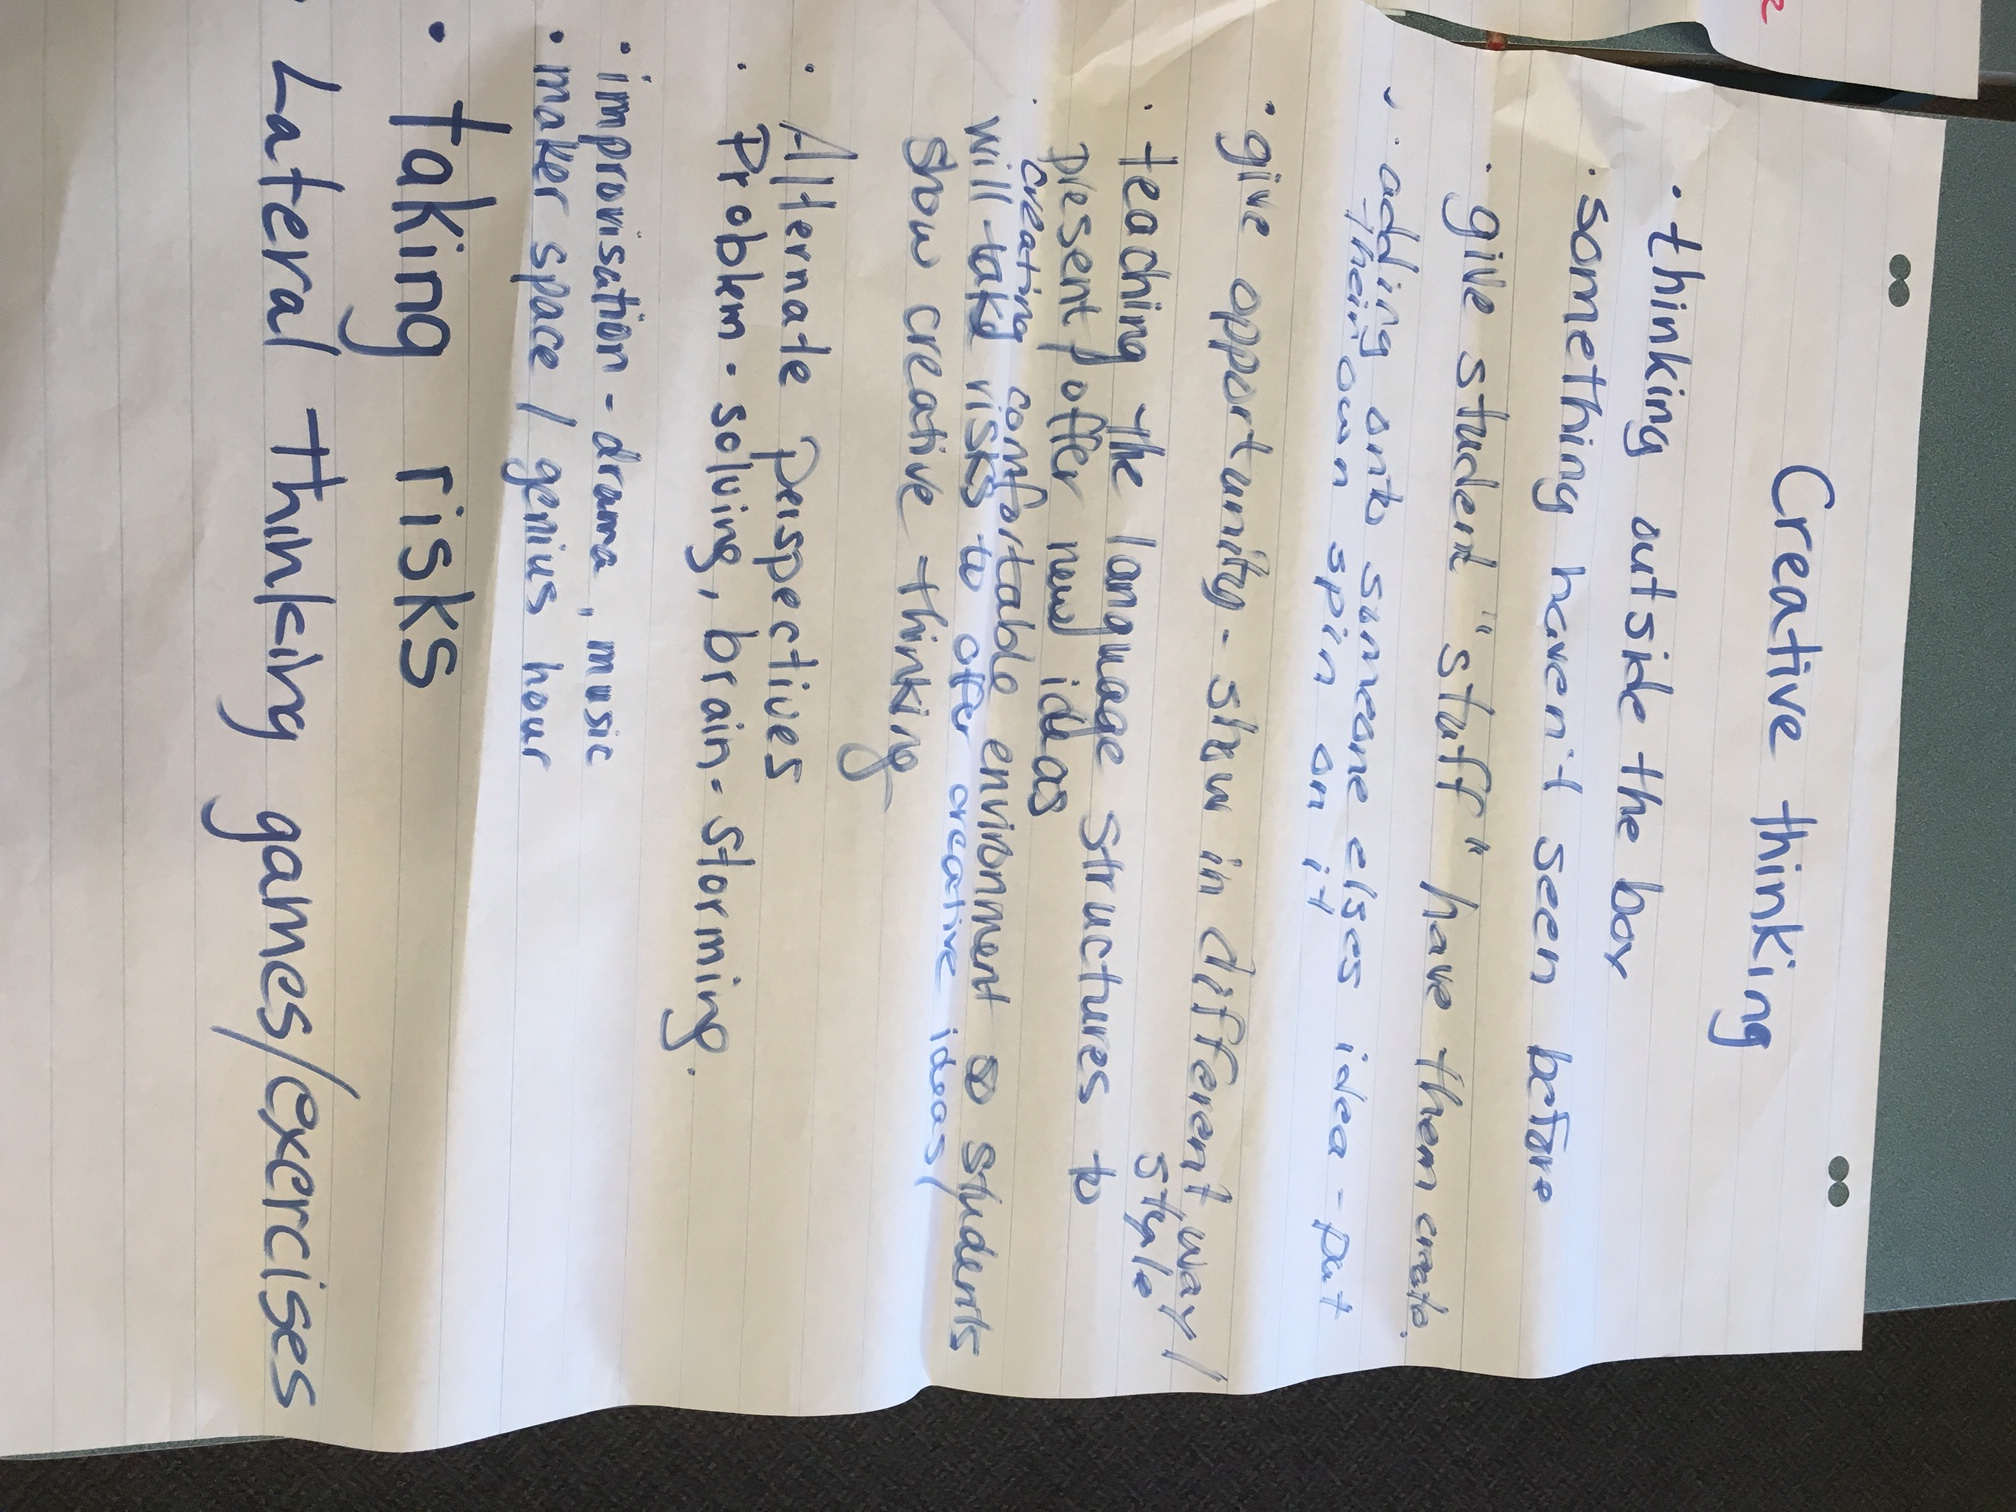 Creative thinking
• thinking outside the box
• something haven't seen before
• give student "stuff" have them create.
• adding onto someone elses idea - put
their own spin on it
• give opportunity - show in different way/
style
• teaching the language structures to
present/offer new ideas
• creating comfortable environment so students
will take risks to offer creative ideas/
show creative thinking
• Alternate perspectives
• Problem-solving, brain-storming.
• improvisation - drama, music
• maker space / genius hour
• taking risks
• Lateral thinking games/exercises